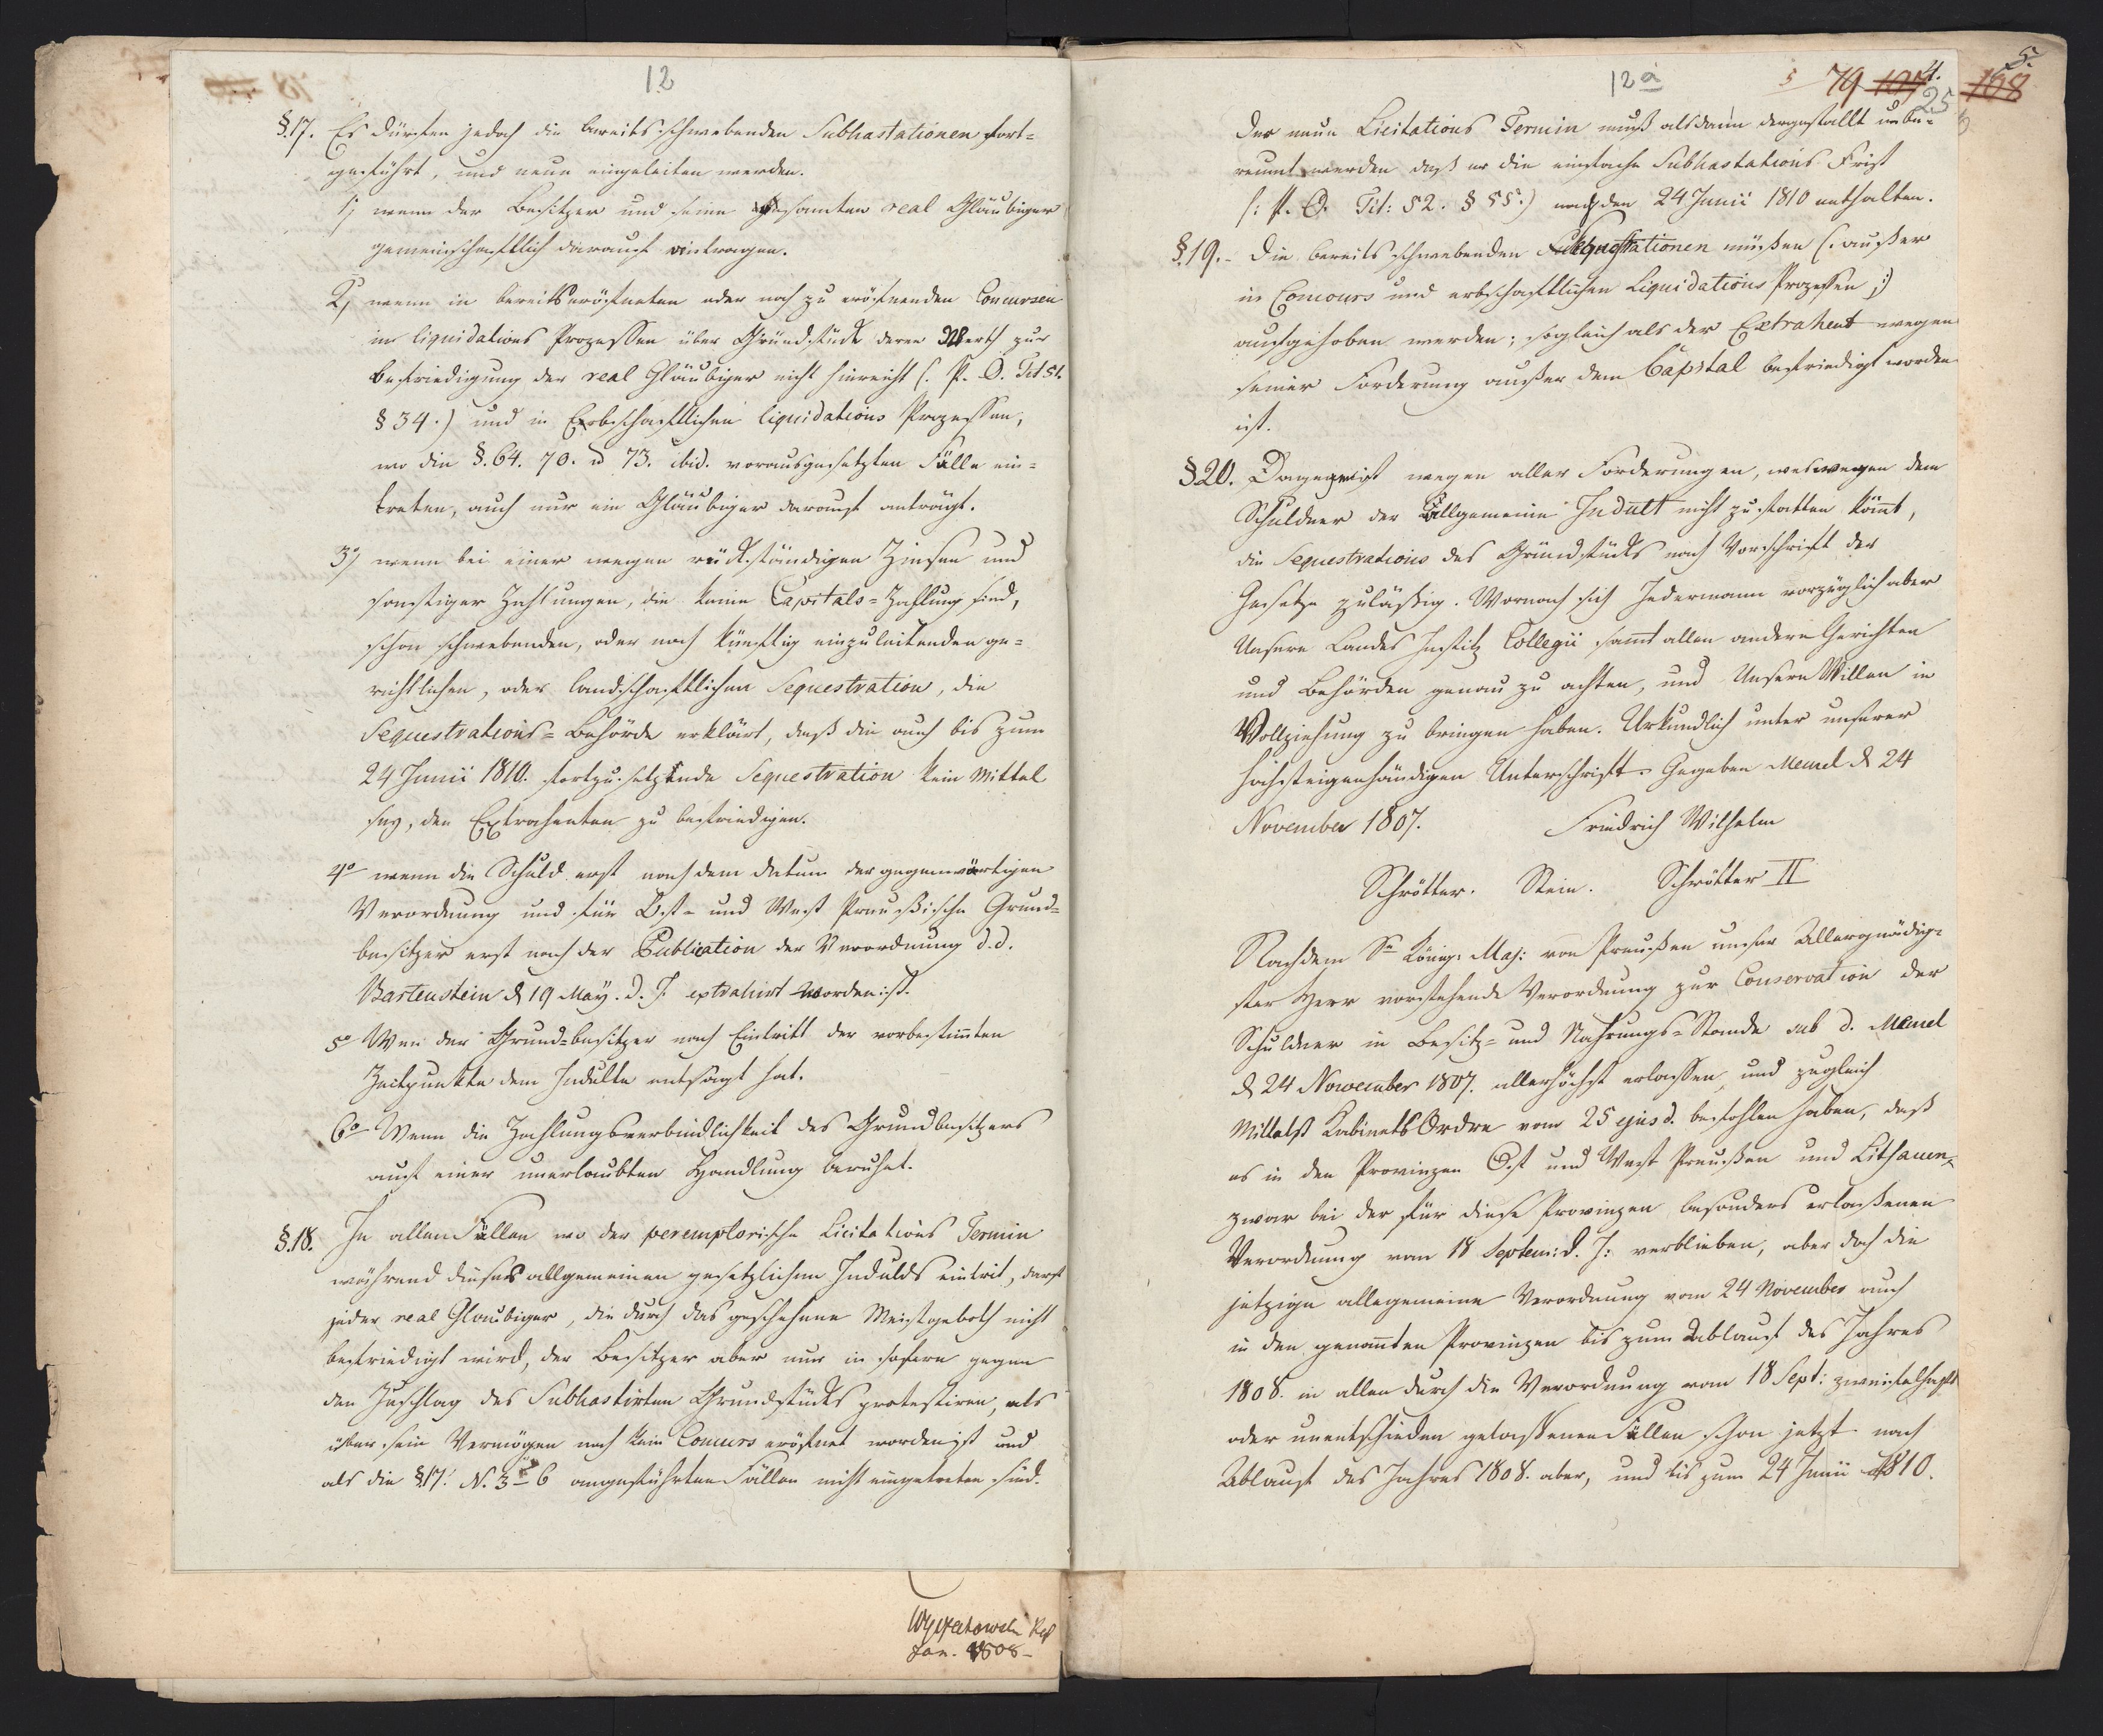 12
§.17. Es dürfen jedoch die bereits schwebenden Subhastationen fort=
geführt, und neue eingeleitet werden.
1, wenn der Besitzer und seine gesamten real Gläubiger
gemeinschaftlich darauf antragen.
2, wenn in bereits eröfneten oder noch zu eröfnenden Concursen
im liquidations Prozessen über Grundstück deren Werth zur
Befriedigung der real Gläubiger nicht hinreicht (. P. O. Tit 51.
§ 34.) und in Erbschaftlichen liquidations Prozessen,
wo die §. 64. 70. u 73. ibid. vorausgesetzten Fälle ein=
treten, auch nur ein Gläubiger darauf anträgt.
3, wenn bei einer wegen rückständigen Zinsen und
sonstiger Zahlungen, die keine Capitals=Zahlung sind,
schon schwebenden, oder noch künftig einzuleitenden ge=
richtlichen, oder landschaftlichen Sequestration, die
Sequestrations=Behörde erklärt, daß die auch bis zum
24 Junii 1810. fortzusetzende Sequestration kein Mittel
sey, den Extrahenten zu befriedigen.
4º wenn die Schuld erst nach dem datum der gegenwärtigen
Verordnung und für Ost- und West Preußische Grund=
besitzer erst nach der Publication der Verordnung d. d.
Bartenstein d 19 May. d. J. extrahirt worden ist.
5º Wen der Grund=besitzer nach Eintritt der vorbestimten
Zeitpunkte dem Indulte entsagt hat.
6º Wenn die Zahlungsverbindlichkeit des Grundbesitzers
auf einer unerlaubten Handlung beruhet.
§.18. In allen Fällen wo der peremptorische Licitations Termin
während dieses allgemeinen gesetzlichen Indults eintrit, darf
jeder real Glaubiger, die durch das geschehene Meistgeboth nicht
befriedigt wird, der Besitzer aber nur in sofern gegen
den Zuschlag des Subhastirten Grundstücks protestiren, als
über sein Vermögen noch kein Concurs eröfnet worden ist und
als die §17. N. 3 - 6 angeführten Fällen nicht eingetreten sind.
Jan. 1808-
12 a
79 107 4.
108
5.
25
Der neue Licitations Termin muß alsdann dergestallt anbe=
raumt werden daß er die einfache Subhastations Frist
(: P. O. Tit: 52. § 55.) nach den 24 Junii 1810 enthalten.
§.19.- Die bereits schwebenden Sequestrationen müßen (. außer
in Concurs und erbschaftlichen Liquidations Prozessen ;)
aufgehoben werden; sogleich als der Extrahent wegen
seiner Forderung außer dem Capital befriedigt worden
ist.
§20. Dagegen ist wegen aller Forderungen, weswegen dem
Schuldner der Allgemeine Indult nicht zu statten kömt,
die Sequestrations des Grundstücks nach Vorschrift der
Gesetze zuläßig. Wornach sich Jedermann vorzüglich aber
Unsere Landes Justitz Collegii samt allen andern Gerichten
und Behörden genau zu achten, und Unsern Willen in
Vollziehung zu bringen haben. Urkundlich unter unserer
höchsteigenhändigen Unterschrift. Gegeben Memel d 24
November 1807. Friedrich Wilhelm
Schrötter. Stein. Schrötter II
Nachdem Se Königl. Maj: von Preußen unser Allergnädig=
ster Herr vorstehende Verordnung zur Conservation der
Schuldner in Besitz= und Nahrungs=Stande sub d. Memel
d 24 November 1807. allerhöchst erlassen, und zugleich
Mittelst Kabinets Ordre vom 25 ejusd. befohlen haben, daß
es in den Provinzen Ost und West Preußen und Lithauen,
zwar bei der für diese Provinzen besonders erlaßenen
Verordnung vom 18 Septem: d. J: verblieben, aber doch die
jetzige allegemeine Verordnung vom 24 November auch
in den genanten Provinzen bis zum Ablauf des Jahres
1808. in allen durch die Verordnung vom 18 Sept: zweifelhaft
oder unentschieden gelaßenen Fällen schon jetzt nach
Ablauf des Jahres 1808. aber, und bis zum 24 Junii 1810.